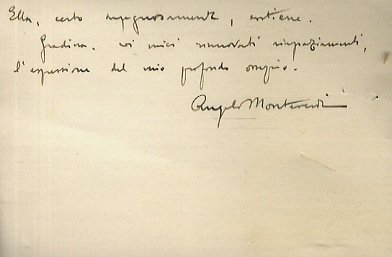 Ella, certo impegnosamente, sostiene.
Gradisca, coi miei rinnovati ringraziamenti,
l'espressione del mio profondo ossequio.
Angelo Monteverdi